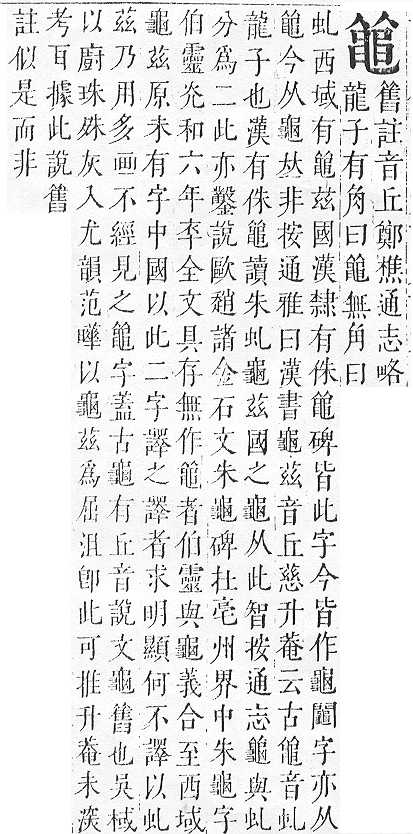 舊註音丘鄭樵通志略
龍子有角曰無角曰
虬西域有茲國漢隸有侏碑皆此字今皆作龜鬮字亦从
今从龜𠀤非按通雅曰漢書龜茲音丘慈升菴云古音虬
龍子也漢有侏讀朱虬龜茲國之龜从此智按通志龜與虬
分爲二此亦鑿說歐趙諸金石文朱龜碑在亳州界中朱龜字
伯靈光和六年卒全文具存無作者伯靈與龜義合至西域
龜茲原未有字中國以此二字譯之譯者求明顯何不譯以虬
茲乃用多画不經見之字蓋古龜有丘音說文龜舊也吳棫
以廚珠殊灰入尤韻范曄以龜茲爲屈沮卽此可推升菴未深
考耳據此說舊
註似是而非